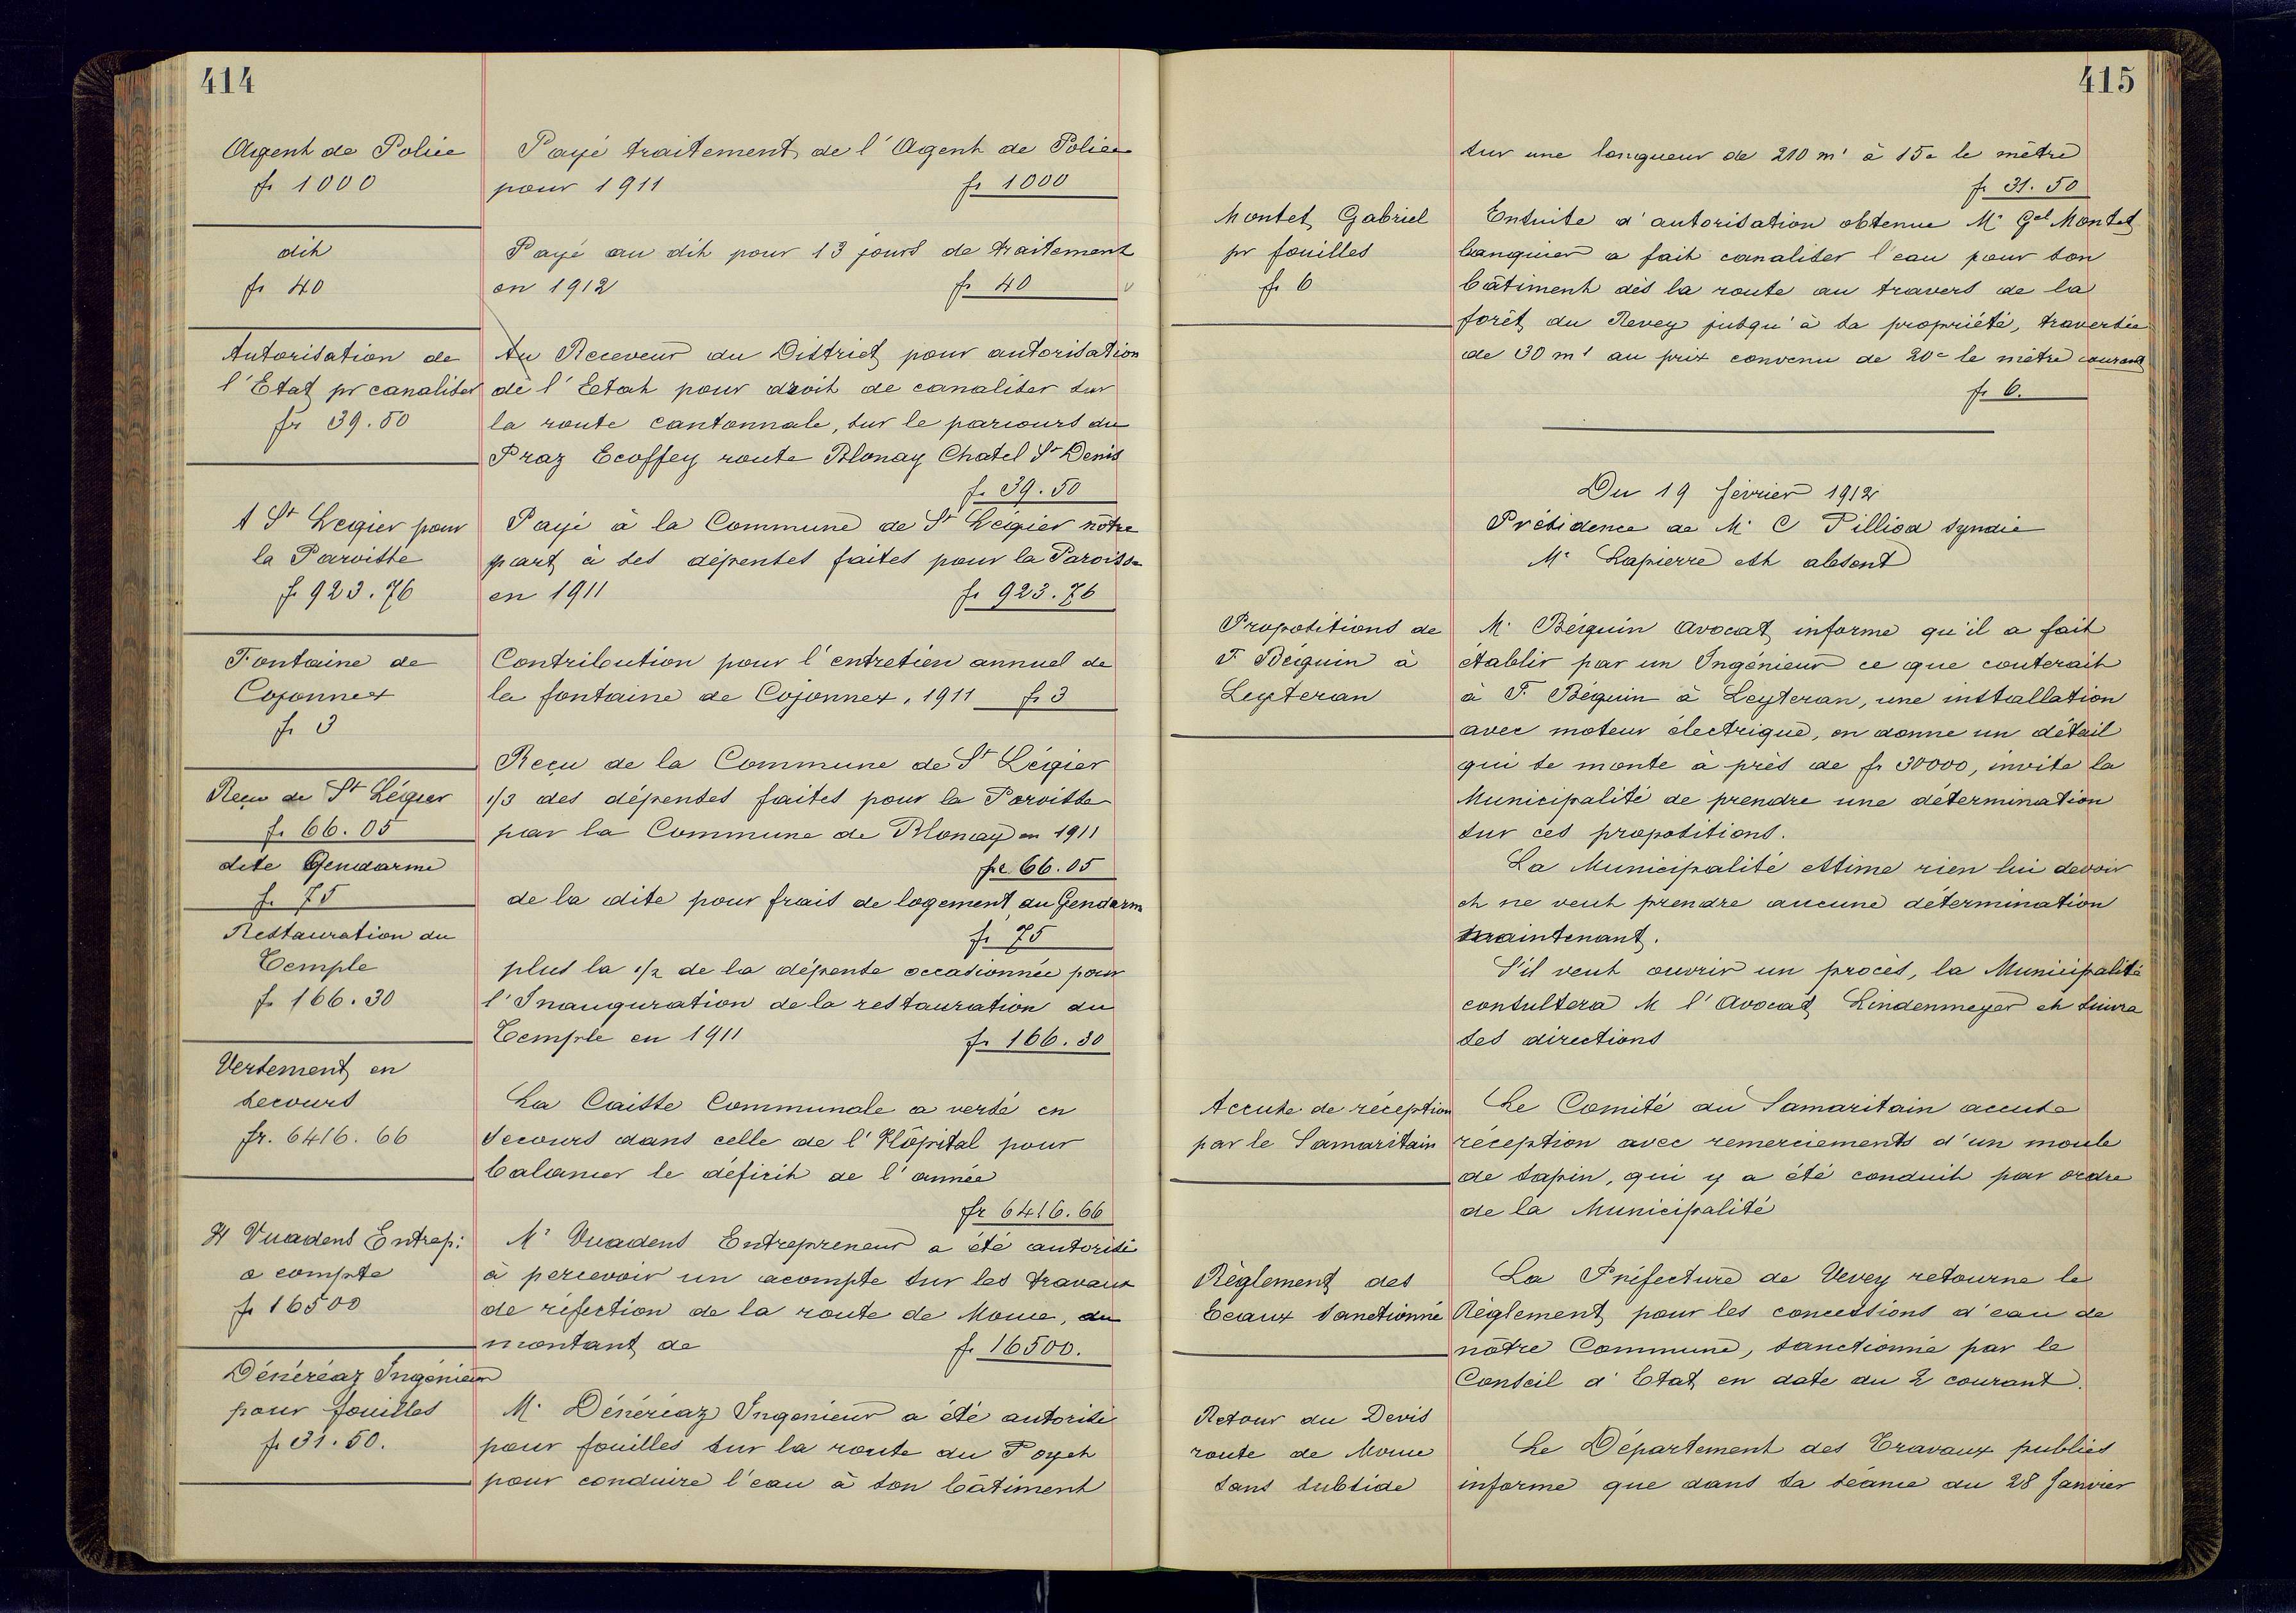 414
Agent de Police
fr 1000
Payé traitement de l'Agent de Police
pour 1911 fr 1000
dit
fr 40
Payé au dit pour 13 jours de traitement
en 1912 fr 40
Autorisation de
l'Etat pr canaliser
fr 39.50
Au Receveur du District pour autorisation
de l'Eetat pour droit de canaliser sur
la route cantonnale, sur le parcours du
Praz Ecoffey route Blonay Chatel St Denis
fr 39.50
A St Legier pour
la Paroisse
fr 923.76
Payé à la Commune de St Légier nôtre
part à ses dépenses faites pour la Paroisse
en 1911 fr 923.76
Fontaine de
Cojonnex
fr 3
Contribution pour l'entretien annuel de
la fontaine de Cojonnex, 1911 fr 3
Reçu de St Légier
fr 66.05
Reçu de la Commune de St Légier
1/3 des dépenses faites pour la Paroisse
par la Commune de Blonay en 1911
frc 66.05
dite Gendarme
fr 75
de la dite pour frais de logement du Gendarm
fr 75
Restauration du
Temple
fr 166.30
plus la 1/2 de la dépense occasionnée pour
l'Inauguration de la restauration du
Temple en 1911 fr 166.30
Versement en
secours
fr. 6416.66
La Caisse Communale a versé en
Secours dans celle de l'Hôpital pour
balancer le déficit de l'année
fr 6416.66
H Vuadens Entrep:
a compte
fr 16500
Mr Vuadens Entrepreneur a été autorisé
à percevoir un acompte sur les travaux
de réfection de la route de Mouce, au
montant de fr 16500.
Dénéréaz Ingénieur
pour fouilles
fr 31.50.
Mr Dénéréaz Ingenieur a été autorisé
pour fouilles sur la route du Poyet
pour conduire l'eau à son bâtiment
415
sur une longueur de 210 m' à 15c le mêtre
fr 31.50
Montet Gabriel
pr fouilles
fr 6
Ensuite d'autorisation obtenue Mr Gel Montet
banquier a fait canaliser l'eau pour son
bâtiment dès la route au travers de la
forêt du Revey jusqu'à sa propriété, traversée
de 30 m' au prix convenu de 20c le mètre courant
fr 6.
Du 19 février 1912
Présidence de Mr C Pilliod Syndic
Mr Lapierre est absent
Propositions de
F Béguin à
Leyteran
Mr Béguin Avocat informe qu'il a fait
établir par un Ingénieur ce que couterait
à F. Béguin à Leyteran, une installation
avec moteur électrique, en donne un détail
qui se monte à près de fr 30000, invite la
Municipalité de prendre une détermination
sur ces propositions.
La Municipalité estime rien lui devoir
et ne veut prendre aucune détermination
maintenant.
S'il veut ouvrir un procès, la Municipalité
consultera M l'Avocat Lindenmeyer et suivra
ses directions
Accuse de réception
par le Samaritain
Le Comité du Samaritain accuse
réception avec remerciements d'un moule
de sapin, qui y a été conduit par ordre
de la Municipalité
Règlement des
Eeaux Sanctionné
La Préfecture de Vevey retourne le
Règlement pour les concessions d'eau de
nôtre Commune, sanctionné par le
Conseil d'Etat en date du 2 courant.
Retour du Devis
route de Mouce
sans subside
Le Département des Travaux publics
informe que dans sa séance du 28 Janvier